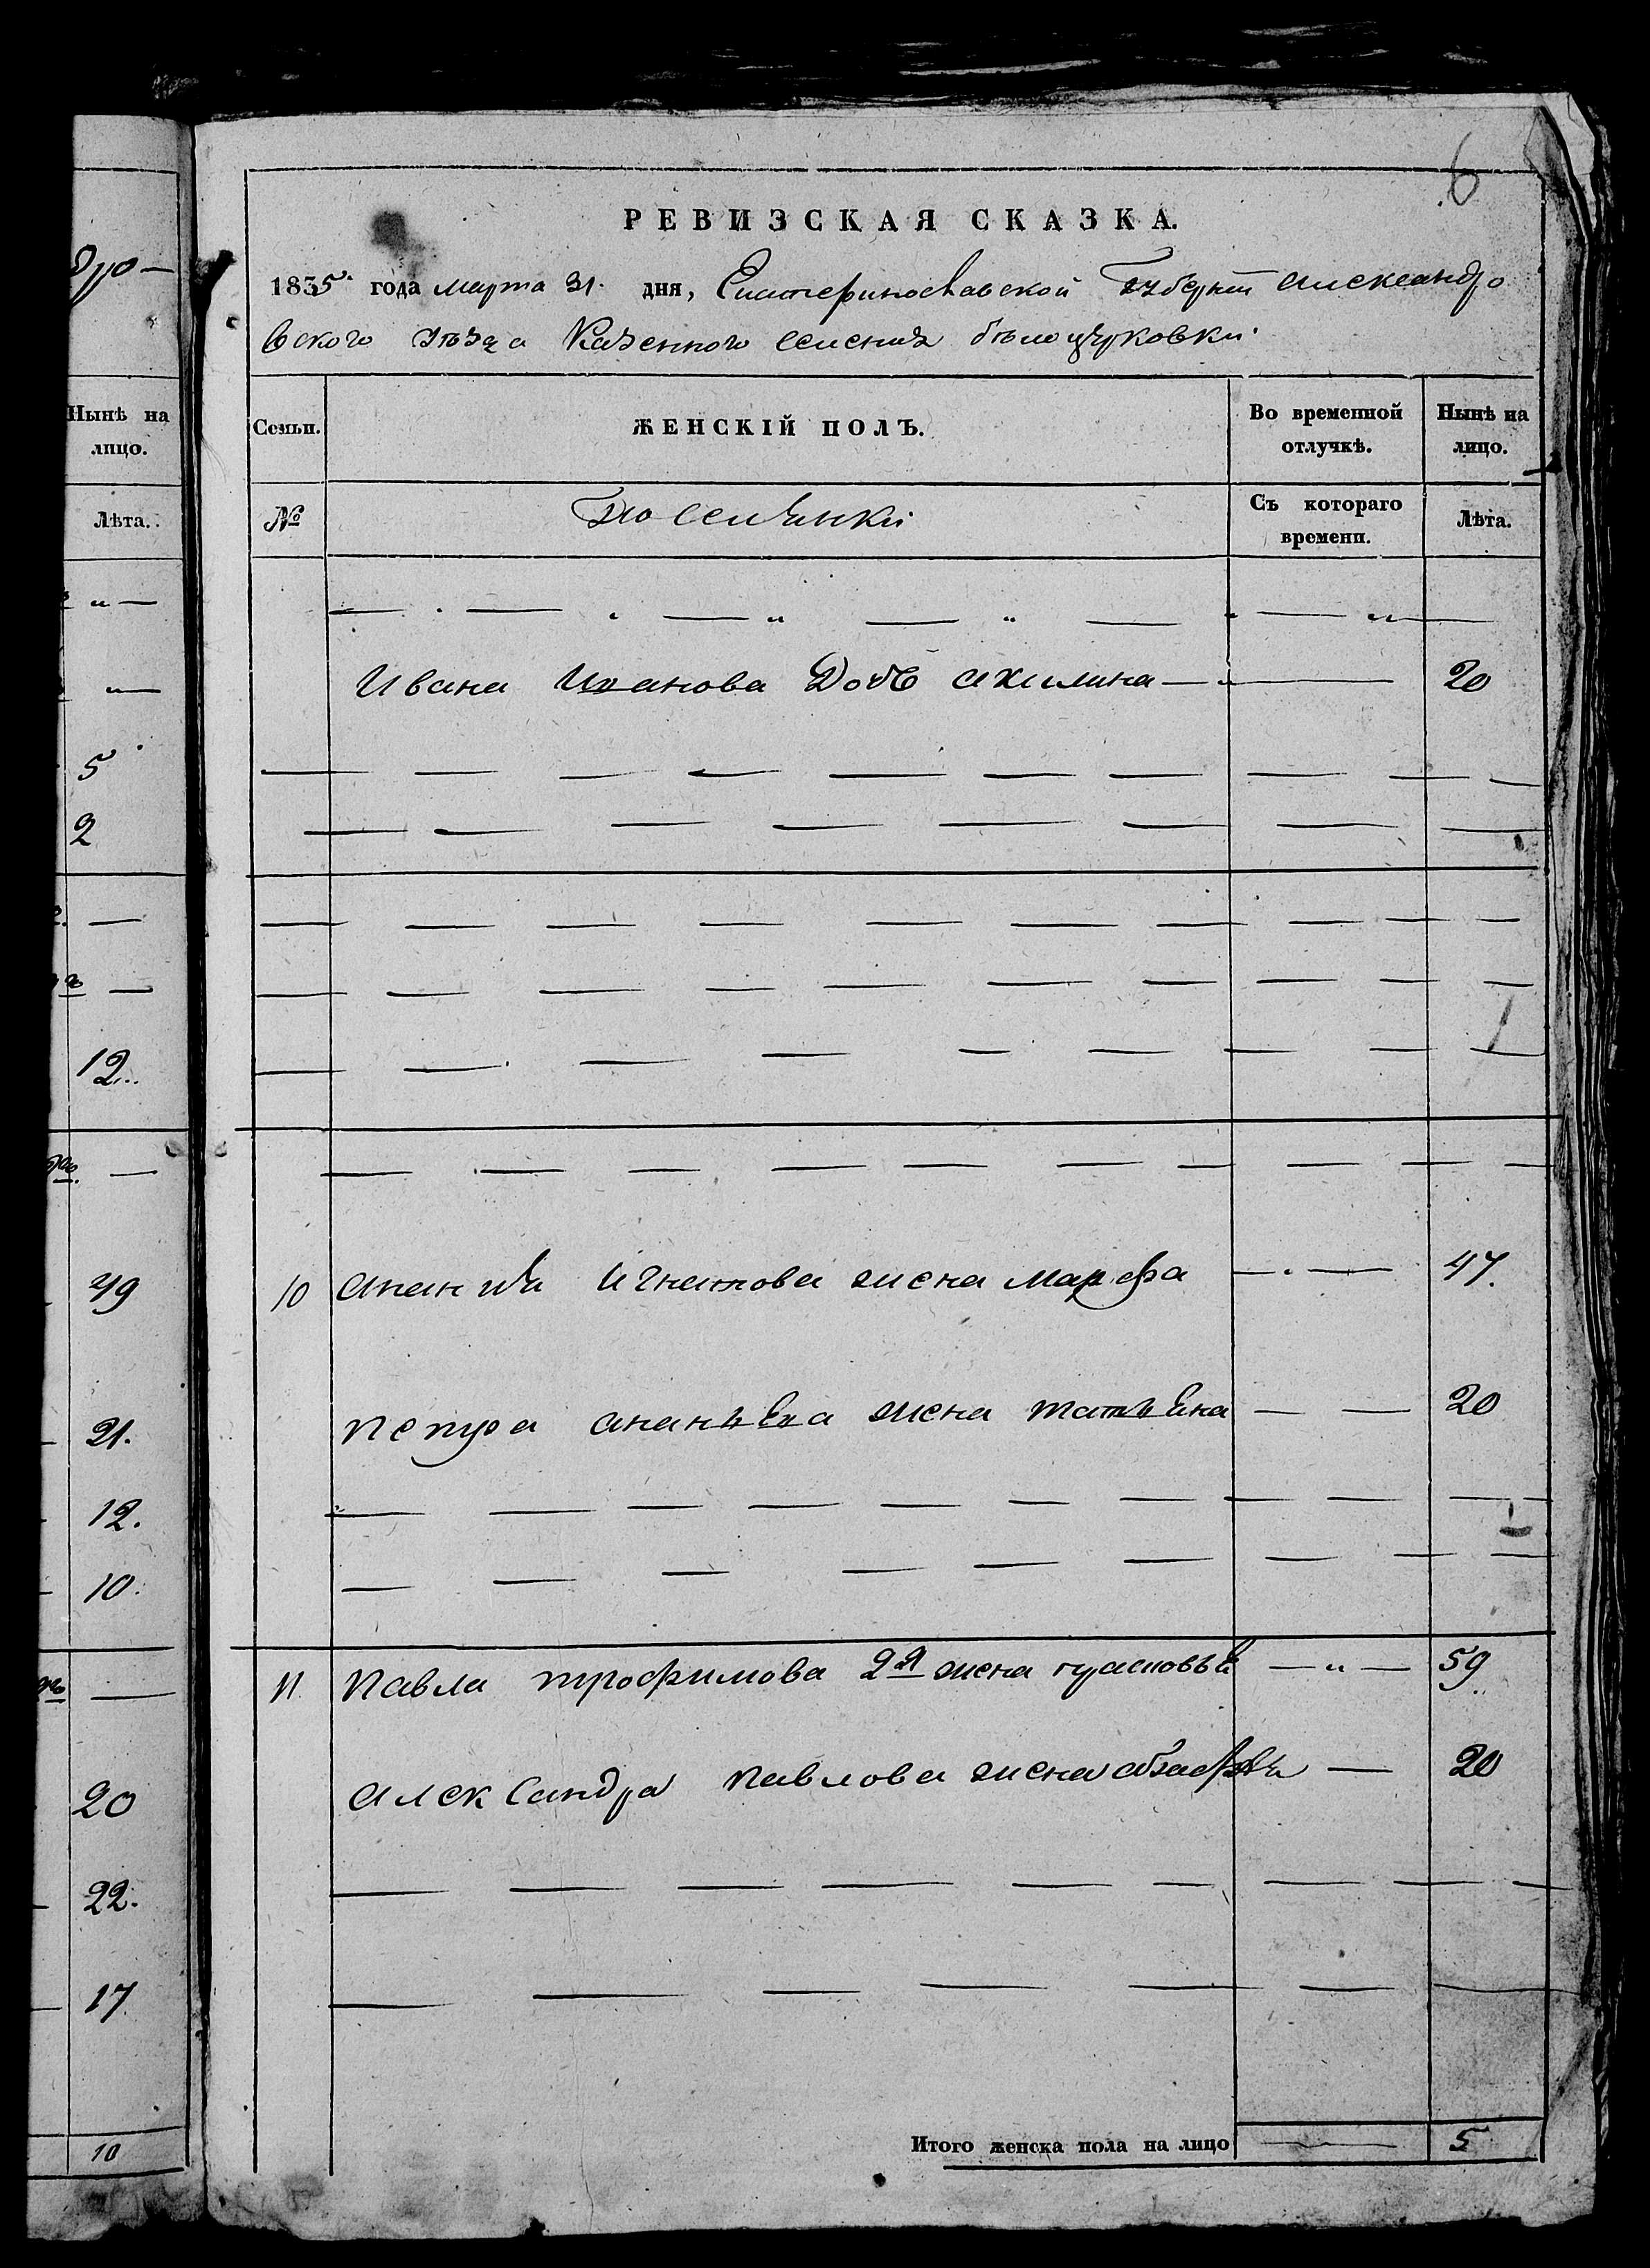 6
РЕВИЗСКАЯ СКАЗКА.
1835. года марта 31. дня, Екатеринославской Губерніи Александро
вского уѣзда Казенного селения бѣлоцерковки
Нынѣ на лицо.
Лѣта.
5
2
12
49
21.
12.
10.
20
22.
17
10
Семьи. ЖЕНСКІЙ ПОЛЪ. Во временной отлучкѣ. Нынѣ на лицо.
№ Поселянки Съ котораго времени. Лѣта.
Ивана Иванова Дочь акилина 20
10 ананія Игнатова жена марфа 47.
петра ананьева жена татьяна 20
11. павла трофимова 2я жена 59
александра павлова жена 20
Итого женска пола на лицо 5